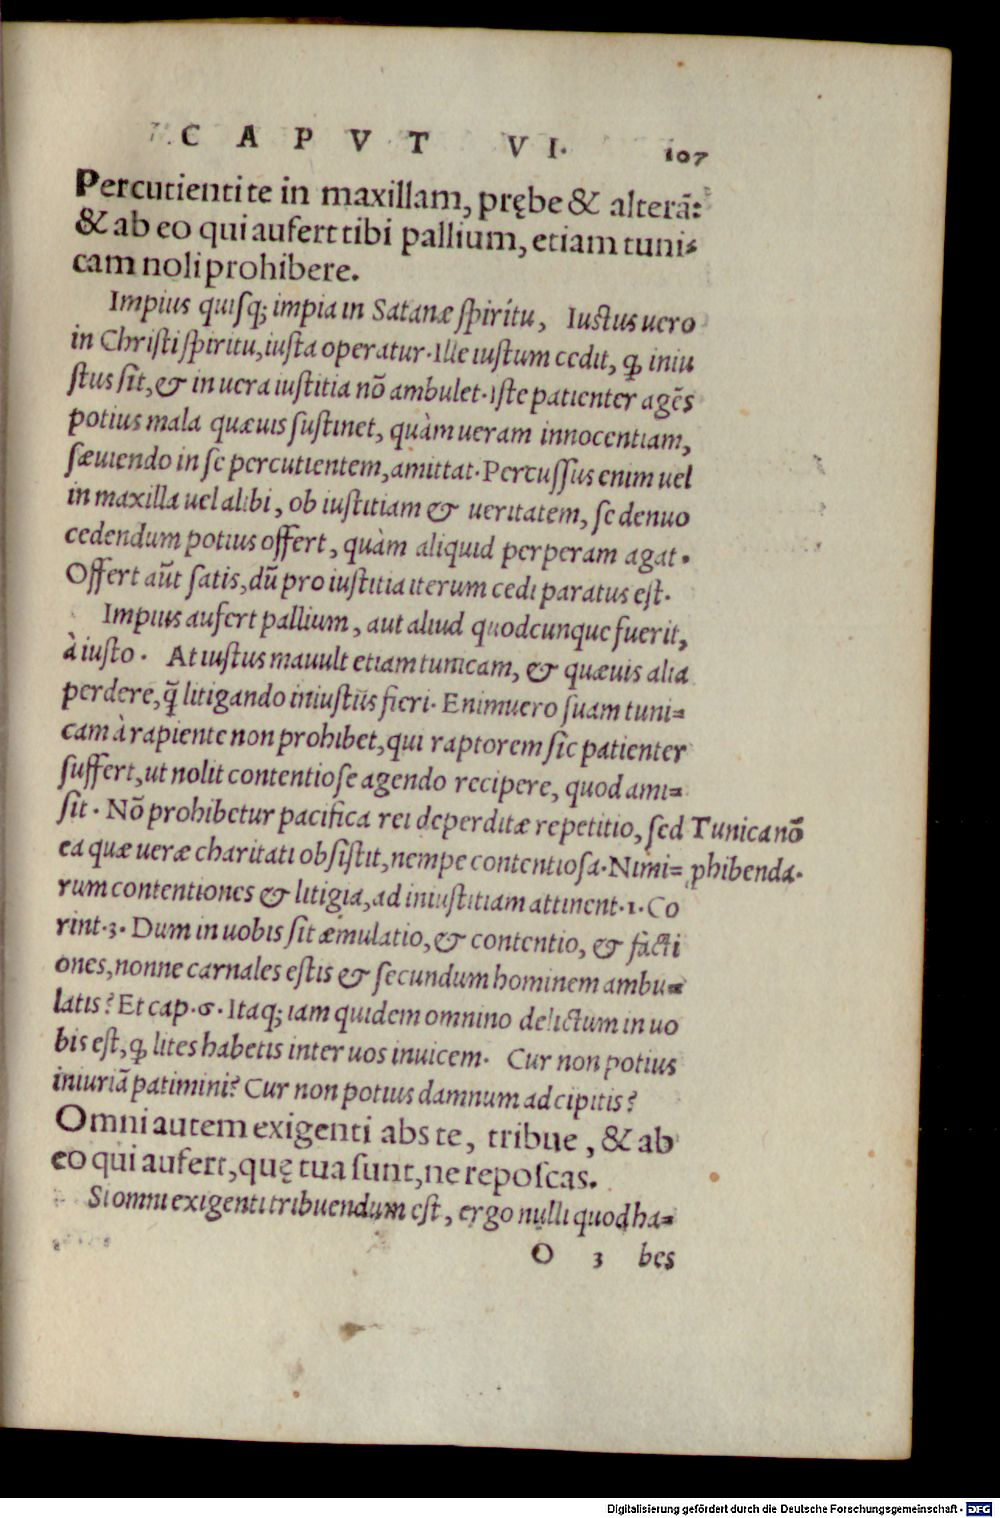 CAPVT VI. 107
Percutienti te in maxillam, prębe & alterā:
& ab eo qui aufert tibi pallium, etiam tuni-
cam noli prohibere.
Impius quisq; impia in Satanæ spiritu, Iustus uero
in Christi spiritu, iusta operatur. Ille iustum cedit, ꝙ iniu
stus sit, & in uera iustitia nō ambulet. Iste patienter agēs
potius mala quæuis sustinet, quàm ueram innocentiam,
sæuiendo in se percutientem, amittat. Percussus enim uel
in maxilla uel alibi, ob iustitiam & ueritatem, se denuo
cedendum potius offert, quàm aliquid perperam agat.
Offert aūt satis, dū pro iustitia iterum cedi paratus est.
Impius aufert pallium, aut aliud quodcunque fuerit,
à iusto. At iustus mauult etiam tunicam, & quæuis alia
perdere, q̄ litigando iniustus fieri. Enimuero suam tuni-
cam à rapiente non prohibet, qui raptorem sic patienter
suffert, ut nolit contentiose agendo recipere, quod ami-
sit. Nō prohibetur pacifica rei deperditæ repetitio, sed
ea quæ ueræ charitati obsistit, nempe contentiosa. Nimi-
rum contentiones & litigia, ad iniustitiam attinent. 1. Co
rint. 3. Dum in uobis sit æmulatio, & contentio, & facti
ones, nonne carnales estis & secundum hominem ambu-
latis? Et cap. 6. Itaq; iam quidem omnino delictum in uo
bis est, ꝙ lites habetis inter uos inuicem. Cur non potius
iniuriā patimini? Cur non potius damnum adcipitis?
Omni autem exigenti abs te, tribue, & ab
eo qui aufert, quę tua sunt, ne reposcas.
Si omni exigenti tribuendum est, ergo nulli quod ha-
O 3 bes
Tunica nō
ꝓhibenda.
Digitalisierung gefördert durch die Deutsche Forschungsgemeinschaft - DFG